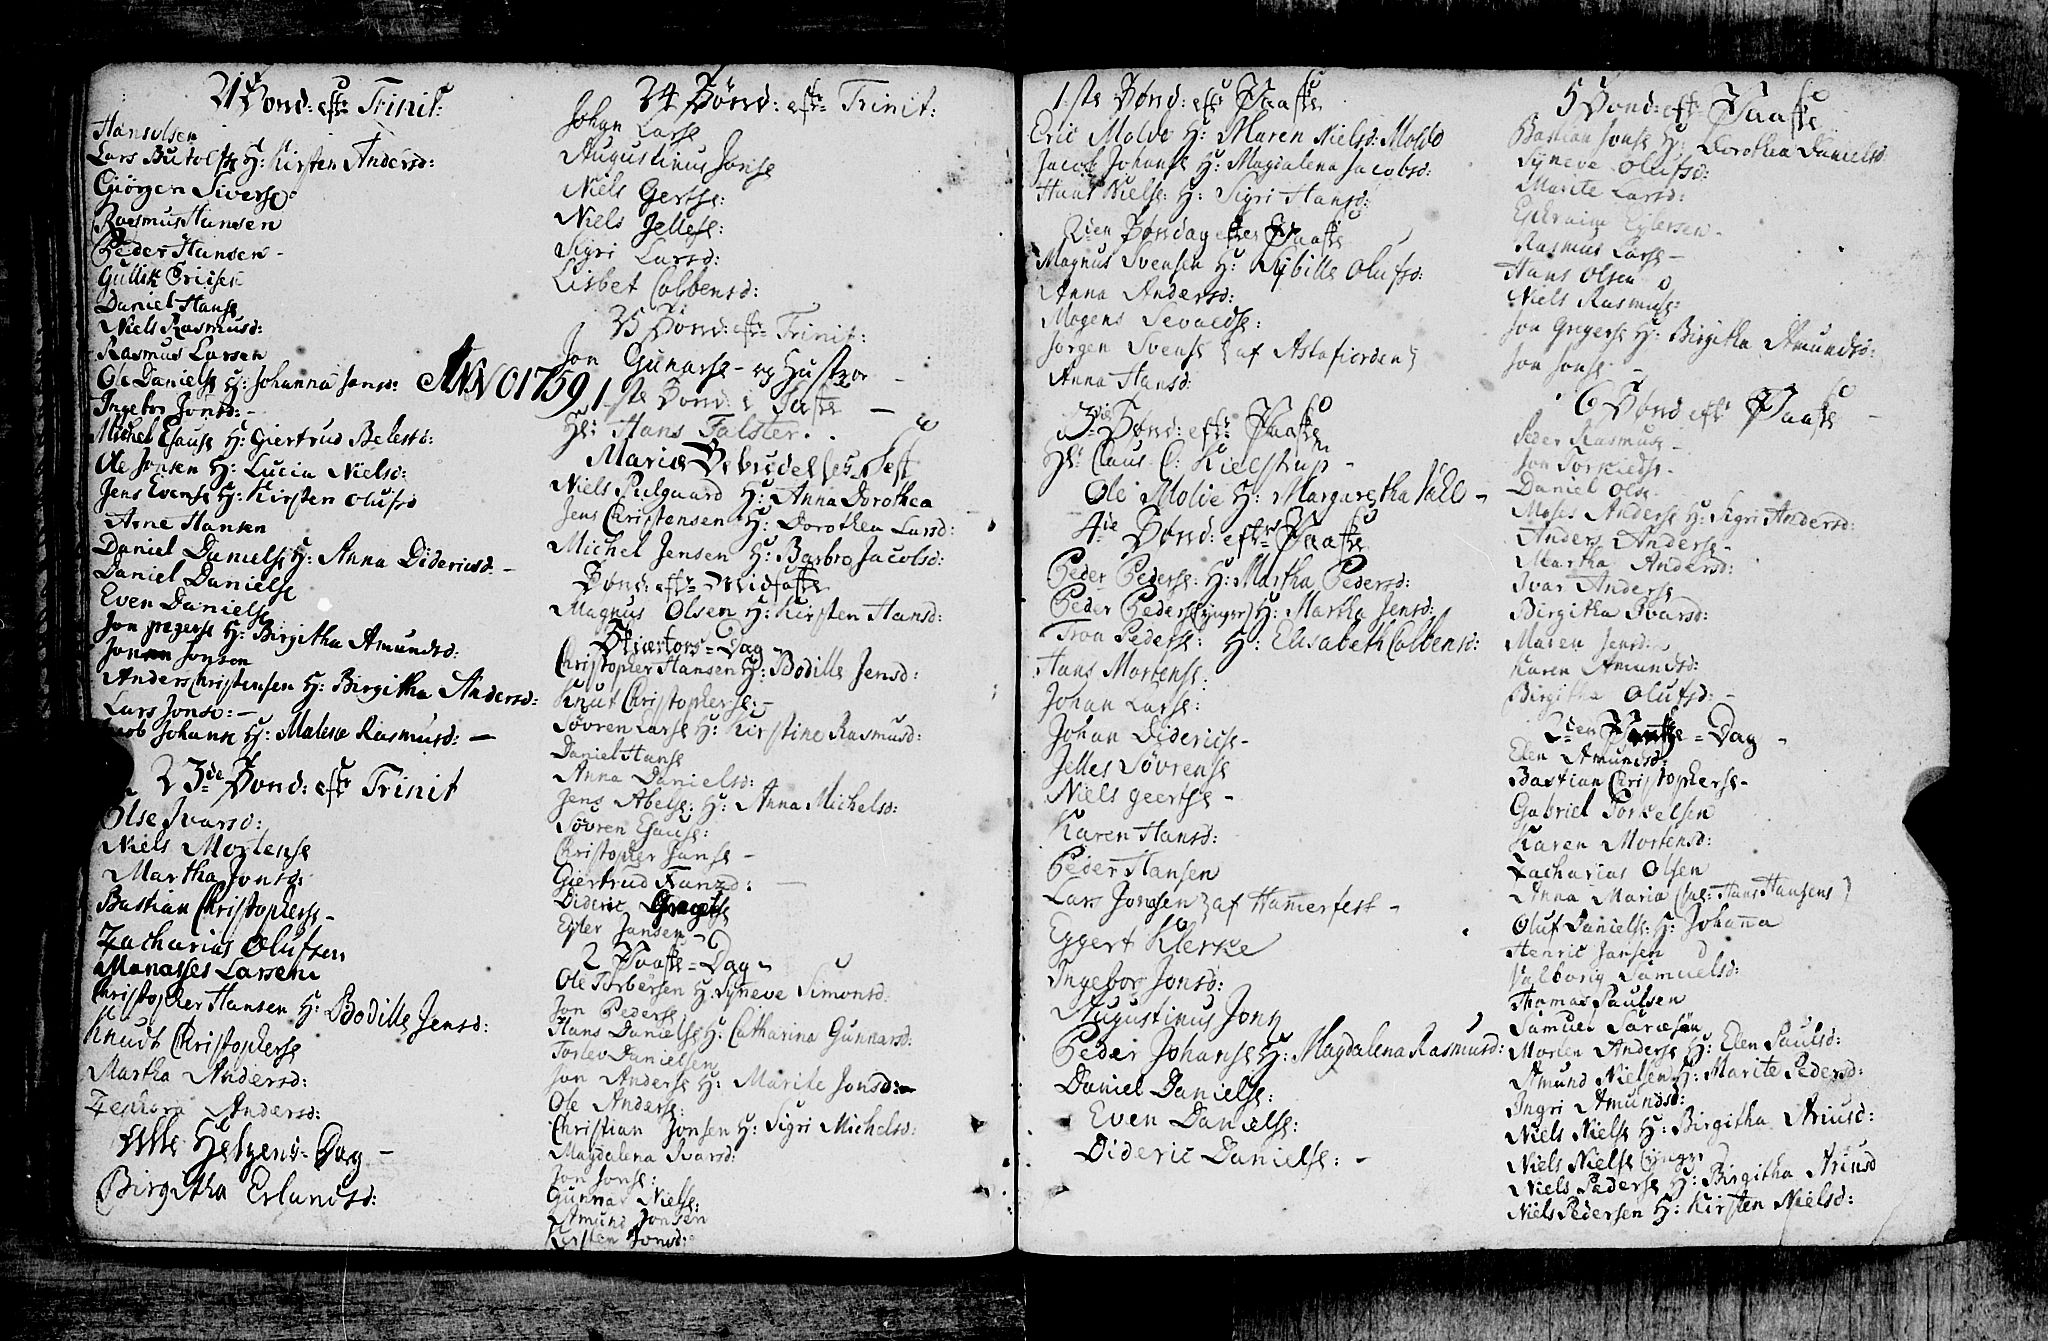 21 Sønd: eft: Trinit:
Hans olsen
Lars Butolfse H: Kirsten Andersd:
Giørgen Siverse:
Rasmus Hansen
Peder Hansen -
Gullik Ericsen
Daniel Hanse
Niels Rasmusd:
Rasmus Larsen
Ole Danielse H: Johanna Jonsd:
Ingebor Jonsd: -
Michel Esause H: Giertrud
Ole Jonsen H: Lucia Nielsd:
Jens Evense H: Kirsten olufsd
Arne Hansen
Daniel Danielse H: Anna Didericsd. -
Daniel Danielse
Even Danielse
Jon gregerse H: Birgitha Amundsd:
Jonsen
Anders Christensen H: Birgitha Andersd:
Lars Jonse: -
Johanse H: Malene Rasmusd: -
23de Sønd: eft: Trinit
Else Ivarsd:
Niels Mortense
Martha Jonsd:
Bastian Christopherse -
Zacharias Olufsen
Manasses Larsen
Christopher Hansen H: Bodille Jensd:
Knudt Christopherse
Martha Andersd:
Andersd:
Alle Helgens Dag -
Birgitha Erlandsd:
24 Sønd: eft: Trinit:
Johan Larse
Augustinus Jonse
Niels Gertse:
Niels Jellese:
Sigri Larsd:
Lisbet Colbensd:
25 Sønd: eft: Trinit:
Jon Gunarse - og Hustroe -
ANNO 1759
1ste Sønd: i Faste -
Hr: Hans Falster.
Mariæ Bebudelses Fest
Niels Pulgaard H: Anna Dorothea
Jens Christensen H: Dorothea Larsd:
Michel Jensen H: Barbro Jacobsd:
Sønd: eft: Midfaste
Magnus Olsen H: Kirsten Hansd:
Skiertors = Dag -
Christopher Hansen H: Bodille Jensd:
Knut Christopherse: -
Søvren Larse H: Kirstine Rasmusd:
Daniel Hanse
Anna Danielsd:
Jens Abelse: H: Anna Michelsd:
Søvren Esause:
Christopher Janse -
Giertrud
Dideric
Eyler Jansen -
2 Paaske = Dag
Ole Torbersen H: Synneve Simonsd:
Jon Pederse
Hans Danielse H: Catharina Gunnarsd:
Torlev Danielsen
Jon Anderse H: Marite Jonsd: -
Ole Anderse:
Christian Jonsen H: Sigri Michelsd:
Magdalena Ivarsd:
Jon Jonse:
Gunnar Nielse:
Amund Jonsen
Kirsten Jonsd:
1.ste Sønd: eft: Paaske
Eric Molde H: Maren Nielsd: Molde
Jacob Johanse H: Magdalena Jacobsd:
Hans Nielse: H: Sigri Hansd:
2den Søndag efter Paaske
Magnus Svensen H: Sybille Olufsd:
Anna Andersd:
Mogens Sevaldse:
Jorgen Svense } af Astafiorden }
Anna Hansd:
3die Sønd: eft: Paaske
Hr: Claus C: Kielstrup -
Ole Molde H: Margaretha Vahl -
4de Sønd: eft: Paaske
Peder Pederse: H: Martha Pedersd:
Peder Peders (ynger) H: Martha Jensd:
Tron Pederse: H: Elisabeth Colbensd:
Hans Mortense.
Johan Larse:
Johan Didericse -
Jelles Søvrense
Niels geertse -
Karen Hansd:
Peder Hansen
Lars Jonsen } af Hammerfest -
Eggert Klerke
Ingebor Jonsd:
Augustinus Jons
Peder Johanse H: Magdalena Rasmusd:
Daniel Danielse:
Even Danielse:
Dideric Danielse: -
5 Sønd: eft: Paaske
Bastian Jonse H: Dorothea Danielsd
Syneve Olufsd:
Marite Larsd:
Ephraim Eylersen -
Rasmus Larse -
Hans Olsen
Niels Rasmuse:
Jon Gregerse H: Birgitha Amundsd:
Jon Jonse: -
6 Sønd eft: Paaske -
Peder Rasmuse -
Jon
Daniel Olse
Moses Anderse H: Sigri Andersd:
Anders Anderse -
Martha Andersd:
Ivar Anderse
Birgitha Ivarsd:
Maren Jensd:
Karen Amundsd:
Birgitha Olufsd: -
2den = Dag -
Elen Amundsd:
Bastian Christopherse -
Gabriel Torkelsen
Karen Mortensd:
Zacharias Olsen
Anna Maria (Sal: Hans Hansens)
Oluf Danielse: H: Johanna
Henric Jansen
Valborig Samuelsd:
Thomas Paulsen
Samuel
Morten Anderse H: Elen Paulsd:
Amund Nielsen H: Marite Pedersd:
Ingri Amundsd:
Niels Nielse H: Birgitha Ariusd:
Niels Nielse (ynger)
Niels Pederse H: Birgitha Ariusd
Niels Pedersen H: Kirsten Nielsd: